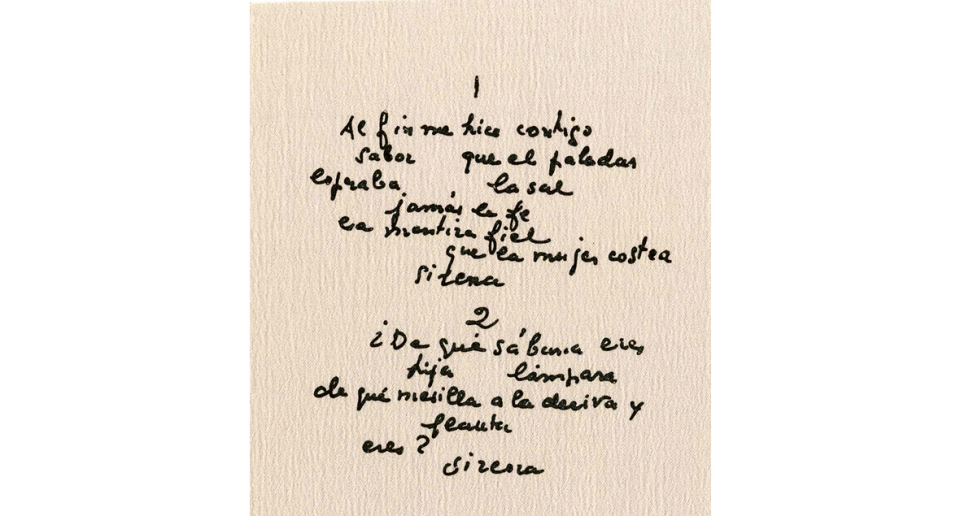 1
Al fin me hice contigo
sabor que el paladar
esperaba la sal
jamás la fe
esa mentira fiel
que la mujer costea
sirena
2
¿De qué sábana eres
hija lámpara
de qué mesilla a la deriva y
flauta
eres?
sirena